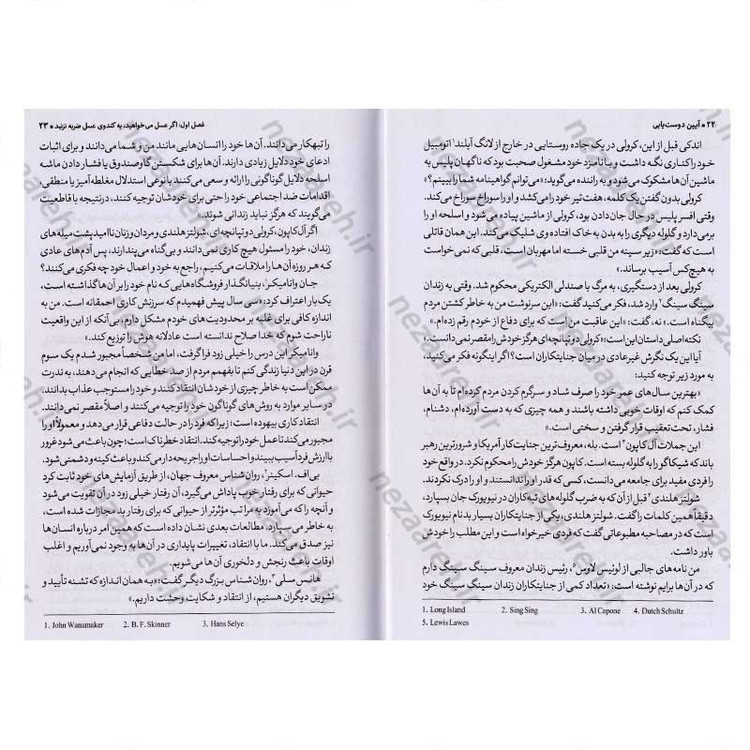 ۲۲ * آیین دوست‌یابی
اندکی قبل از این، کرولی در یک جاده روستایی در خارج از لانگ آیلند۱ اتومبیل
خود را کناری نگه داشت و با نامزد خود مشغول صحبت بود که ناگهان پلیس به
ماشین آن‌ها مشکوک می‌شود و به راننده می‌گوید: «می‌توانم گواهینامه شما را ببینم؟»
کرولی بدون گفتن یک کلمه، هفت‌تیر خود را می‌کشد و او را سوراخ سوراخ می‌کند.
وقتی افسر پلیس در حال جان دادن بود، کرولی از ماشین پیاده می‌شود و اسلحه او را
برمی‌دارد و گلوله دیگری را به بدن به خاک افتاده وی شلیک می‌کند. این همان قاتلی
است که گفت: «زیر سینه من قلبی خسته اما مهربان است، قلبی که نمی‌خواست
به هیچ‌کس آسیب برساند.»
کرولی بعد از دستگیری، به مرگ با صندلی الکتریکی محکوم شد. وقتی به زندان
سینگ سینگ۲ وارد شد، فکر می‌کنید گفت: «این سرنوشت من به خاطر کشتن مردم
بیگناه است.» نه، گفت: «این عاقبت من است که برای دفاع از خودم رقم زده‌ام.»
نکته اصلی داستان این است: «کرولی دو تپانچه‌ای هرگز خودش را مقصر نمی‌دانست.»
آیا این یک نگرش غیرعادی در میان جنایتکاران است؟ اگر اینگونه فکر می‌کنید،
به مورد زیر توجه کنید:
«بهترین سال‌های عمر خود را صرف شاد و سرگرم کردن مردم کرده‌ام تا به آن‌ها
کمک کنم که اوقات خوبی داشته باشند و همه چیزی که به دست آورده‌ام، دشنام،
فشار، تحت‌تعقیب قرار گرفتن و سختی است.»
این جملات آل کاپون۳ است. بله، معروف‌ترین جنایت‌کار آمریکا و شرورترین رهبر
باند که شیکاگو را به گلوله بسته است. کاپون هرگز خودش را محکوم نکرد. در واقع خود
را فردی مفید برای جامعه می‌دانست، کسی که قدر او را ندانستند و او را درک نکردند.
شولتز هلندی۴ قبل از آن که به ضرب گلوله‌های تبه‌کاران در نیویورک جان بسپارد،
دقیقا همین کلمات را گفت. شولتز هلندی، یکی از جنایتکاران بسیار بدنام نیویورک
است که در مصاحبه مطبوعاتی گفت که فردی خیرخواه است و این مطلب را خودش
باور داشت.
من نامه‌های جالبی از لوئیس لاوس۵، رئیس زندان معروف سینگ سینگ دارم
که در آن‌ها برایم نوشته است: «تعداد کمی از جنایتکاران زندان سینگ سینگ خود
1. Long Island 2. Sing Sing 3. Al Capone 4. Dutch Schultz
5. Lewis Lawes
فصل اول: اگر عسل می‌خواهید، به کندوی عسل ضربه نزنید * ۲۳
را تبهکار می‌دانند. آن‌ها خود را انسان‌هایی مانند من و شما می‌دانند و برای اثبات
ادعای خود دلایل زیادی دارند. آن‌ها برای شکستن گاوصندوق یا فشار دادن ماشه
اسلحه دلایل گوناگونی را ارائه و سعی می‌کنند با نوعی استدلال مغلطه‌آمیز یا منطقی،
اقدامات ضد اجتماعی خود را حتی برای خودشان توجیه کنند، در نتیجه با قاطعیت
می‌گویند که هرگز نباید زندانی شوند.»
اگر آل کاپون، کرولی دو تپانچه‌ای، شولتز هلندی و مردان و زنان ناامید پشت میله‌های
زندان، خود را مسئول هیچ کاری نمی‌دانند و بی‌گناه می‌پندارند، پس آدم‌های عادی
که هر روزه آن‌ها را ملاقات می‌کنیم، راجع به خود و اعمال خود چه فکری می‌کنند؟
جان وانامیکر۱، بنیانگذار فروشگاه‌هایی که نام خود را بر آن‌ها گذاشته است،
یک بار اعتراف کرد: «سی سال پیش فهمیدم که سرزنش کاری احمقانه است. من به
اندازه کافی برای غلبه بر محدودیت‌های خودم مشکل دارم، بی آنکه از این واقعیت
ناراحت شوم که خدا صلاح ندانسته است عادلانه هوش را توزیع کند.»
وانامیکر این درس را خیلی زود فرا گرفت، اما من شخصاً مجبور شدم یک سوم
قرن در این دنیا زندگی کنم تا بفهمم مردم از صد خطایی که انجام می‌دهند، به ندرت
ممکن است به خاطر چیزی از خودشان انتقاد کنند و خود را مستوجب عذاب بدانند.
در سایر موارد به روش‌های گوناگون خود را توجیه می‌کنند و اصلاً مقصر نمی‌دانند.
انتقاد کاری بیهوده است؛ زیرا که فرد را در حالت دفاعی قرار می‌دهد و معمولاً او را
مجبور می‌کند تا عمل خود را توجیه کند. انتقاد خطرناک است؛ چون باعث می‌شود غرور
با ارزش فرد آسیب ببیند و احساسات او را جریحه‌دار می‌کند و باعث کینه و دشمنی شود.
بی‌اف. اسکینر۲، روان‌شناس معروف جهان، از طریق آزمایش‌های خود ثابت کرد
حیوانی که برای رفتار خوب پاداش می‌گیرد، آن رفتار خیلی زود در آن تقویت می‌شود
و آنچه را که می‌آموزد به مراتب مؤثرتر از حیوانی که برای رفتار بد مجازات شده است،
به خاطر می‌سپارد. مطالعات بعدی نشان داده است که همین امر درباره انسان‌ها
نیز صدق می‌کند. ما با انتقاد، تغییرات پایداری در آن‌ها به وجود نمی‌آوریم و اغلب
اوقات باعث رنجش و دلخوری آن‌ها می‌شویم.
هانس سلی۳، روان‌شناس بزرگ دیگر گفت: «به همان اندازه که تشنه تأیید و
تشویق دیگران هستیم، از انتقاد و شکایت وحشت داریم.»
1. John Wanamaker 2. B. F. Skinner 3. Hans Selye
nezaareh.ir